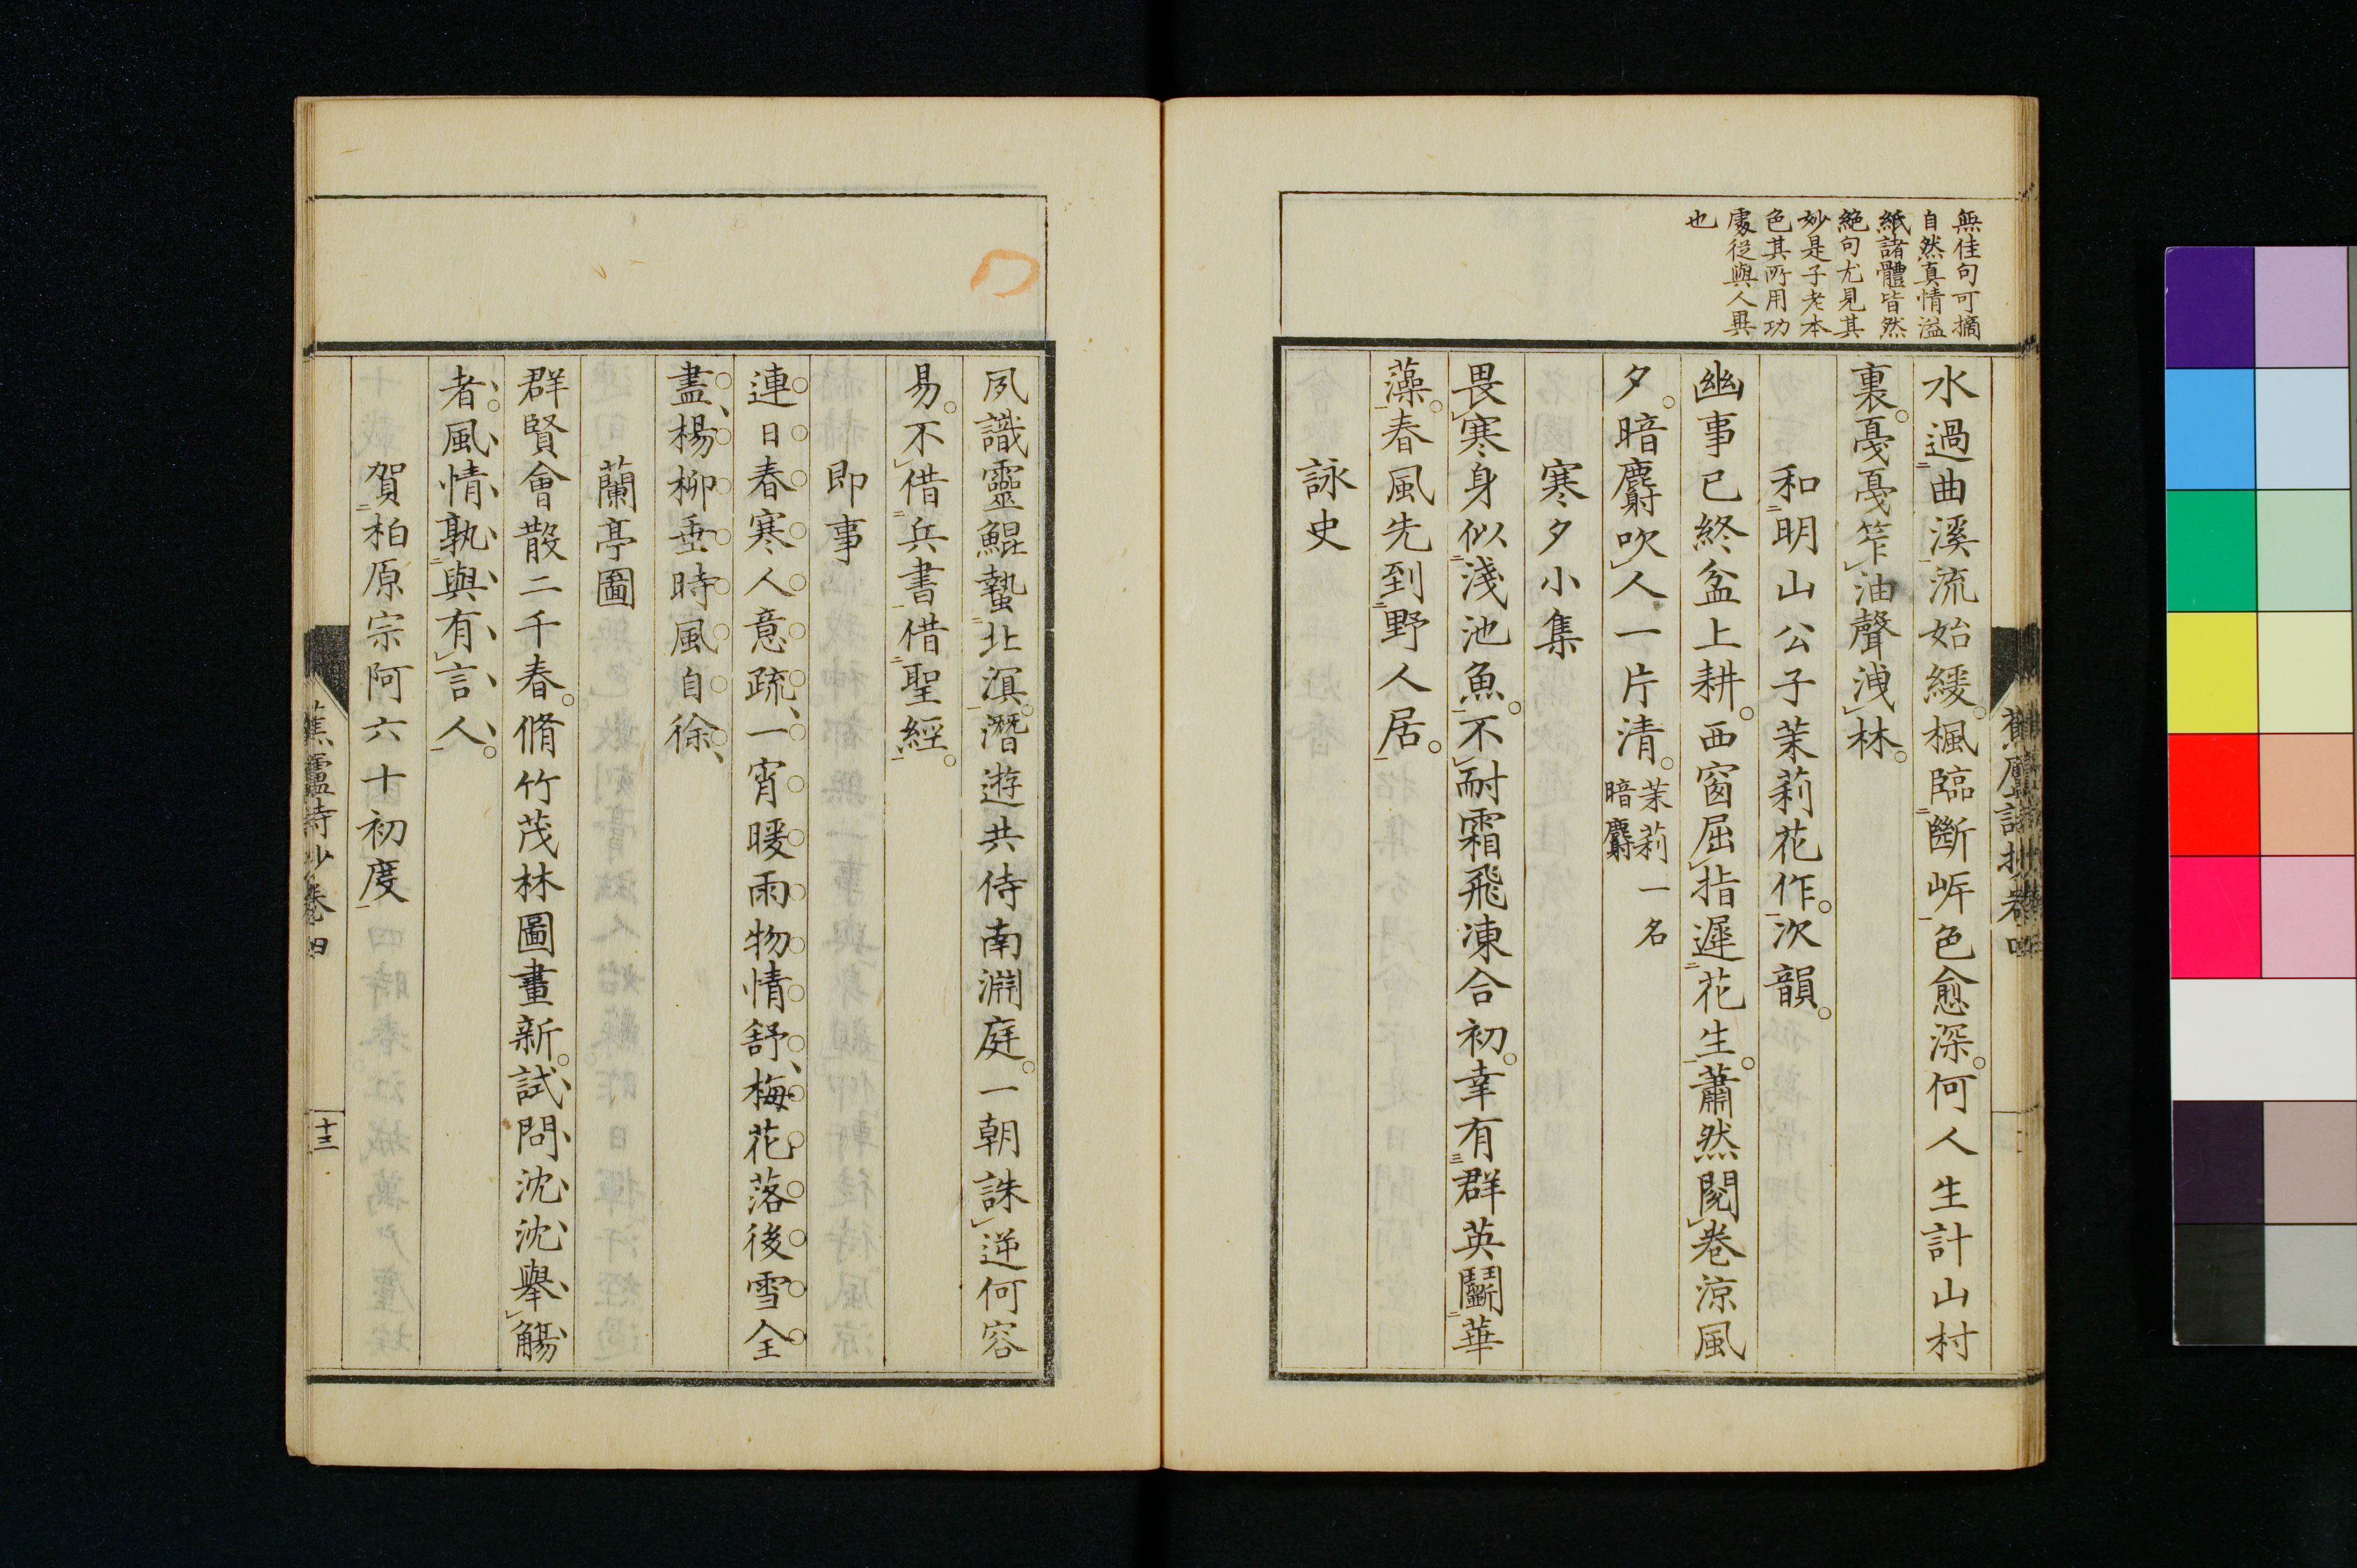 無佳句可摘
自然真情溢
紙諸體皆然
絶句尤見其
妙是子老本
色其所用功
處從與人異
也
水過曲溪流始緩楓臨斷岸色愈深何人生計山村
裏戞戞笮油聲洩林
和明山公子茉莉花作次韻
幽事已終盆上耕西窗屈指遲花生蕭然閲卷涼風
夕暗麝吹人一片清
茉莉一名
暗麝
寒夕小集
畏寒身似淺池魚不耐霜飛凍合初幸有群英鬪華
藻春風先到野人居
詠史
夙識靈鯤蟄北溟潛遊共侍南淵庭一朝誅逆何容
易不借兵書借聖經
即事
連日春寒人意疏一宵暖雨物情舒梅花落後雪全
盡楊柳垂時風自徐
蘭亭圖
群賢會散二千春脩竹茂林圖畫新試問沈沈擧觴
者風情孰與有言人
賀柏原宗阿六十初度
蕉廬詩抄卷四
十三